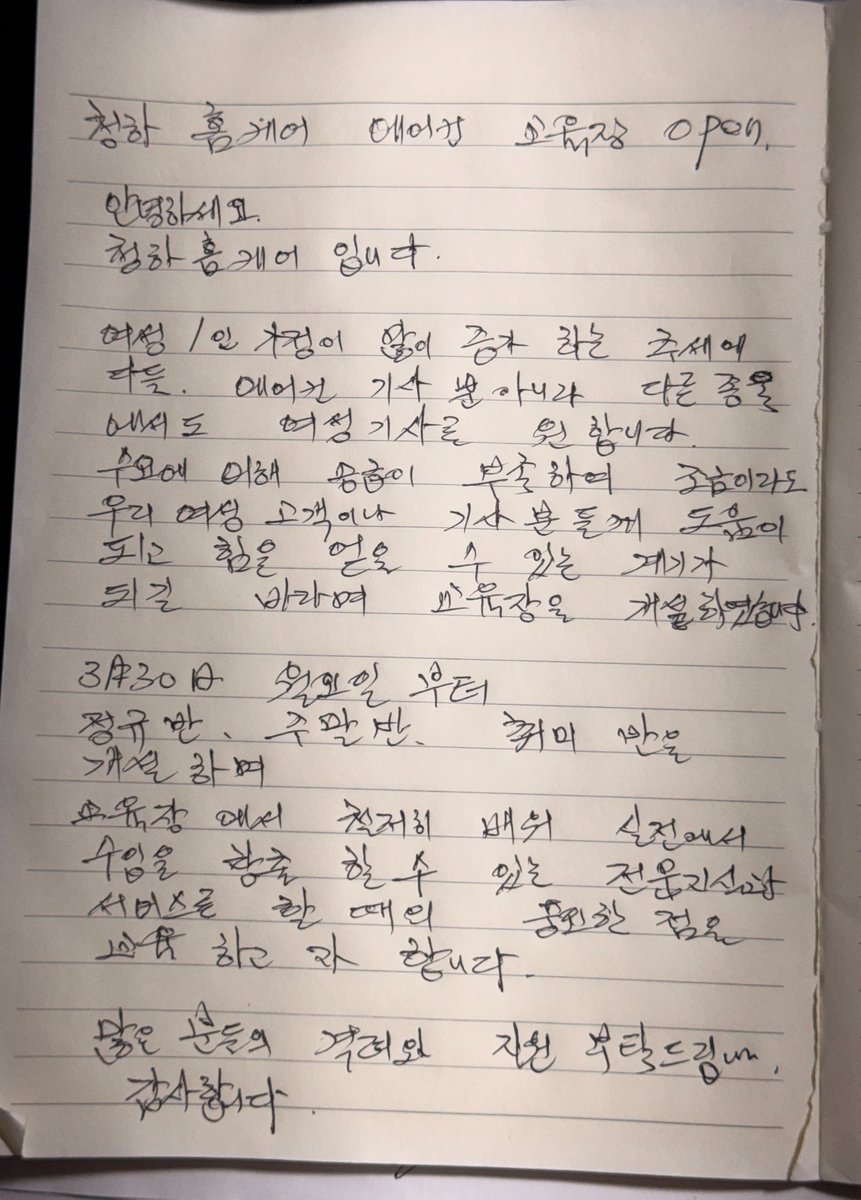 청하 홈케어 에어컨 교육장 open.
안녕하세요.
청하홈케어 입니다.
여성 1인 가정이 많이 증가 하는 추세에
다들. 에어컨 기사 뿐 아니라 다른 종목
에서도 여성기사를 원 합니다.
수요에 의해 공급이 부족하여 조금이라도
우리 여성 고객이나 기사 분들께 도움이
되고 힘을 얻을 수 있는 계기가
되길 바라며 교육장을
3月30日 월요일 부터
정규반、주말반、취미 반을
개설 하며
교육장 에서 철저히 배워 실전에서
수입을 창출 할 수 있는 전문지식과
서비스를 할 때의 중요한 점을
교육 하고 자 합니다.
많은 분들의 격려와 지원 부탁드립니다.
감사합니다.